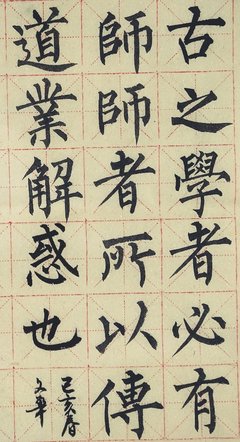 古之學者必有
師師者所以傳
道業解惑也
己亥春
文華